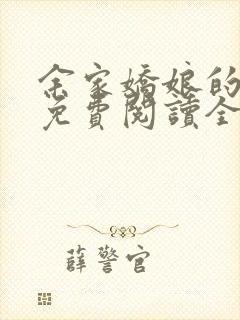 余家嬌娘的
免費閱讀全
薛警官